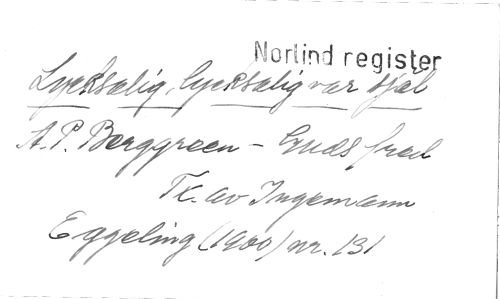 Norlind register
Lycksalig, lycksalig var själ
A. P. Berggreen – Guds fred
Tr. av Ingemann
Eggeling (1900) nr. 131